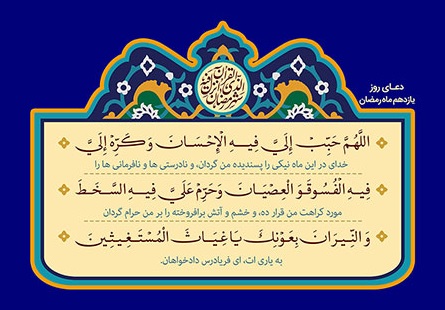 دعـای روز
یازدهم ماه رمضان
شهر رمضان الذی انزل فیه القرآن
اللَّهُمَّ حَبِّبْ إِلَيَّ فِيهِ الْإِحْسَانَ وَكَرِّهْ إِلَيَّ
خدای در این ماه نیکی را پسندیده من گردان، و نادرستی ها و نافرمانی ها را
فِيهِ الْفُسُوقَ وَ الْعِصْيَانَ وَحَرِّمْ عَلَيَّ فِيهِ السَّخَطَ
مورد کراهت من قرار ده، و خشم و آتش برافروخته را بر من حرام گردان
وَ النِّيرَانَ بِعَوْنِكَ يَا غِيَاثَ الْمُسْتَغِيثِينَ
به یاری ات، ای فریادرس دادخواهان.